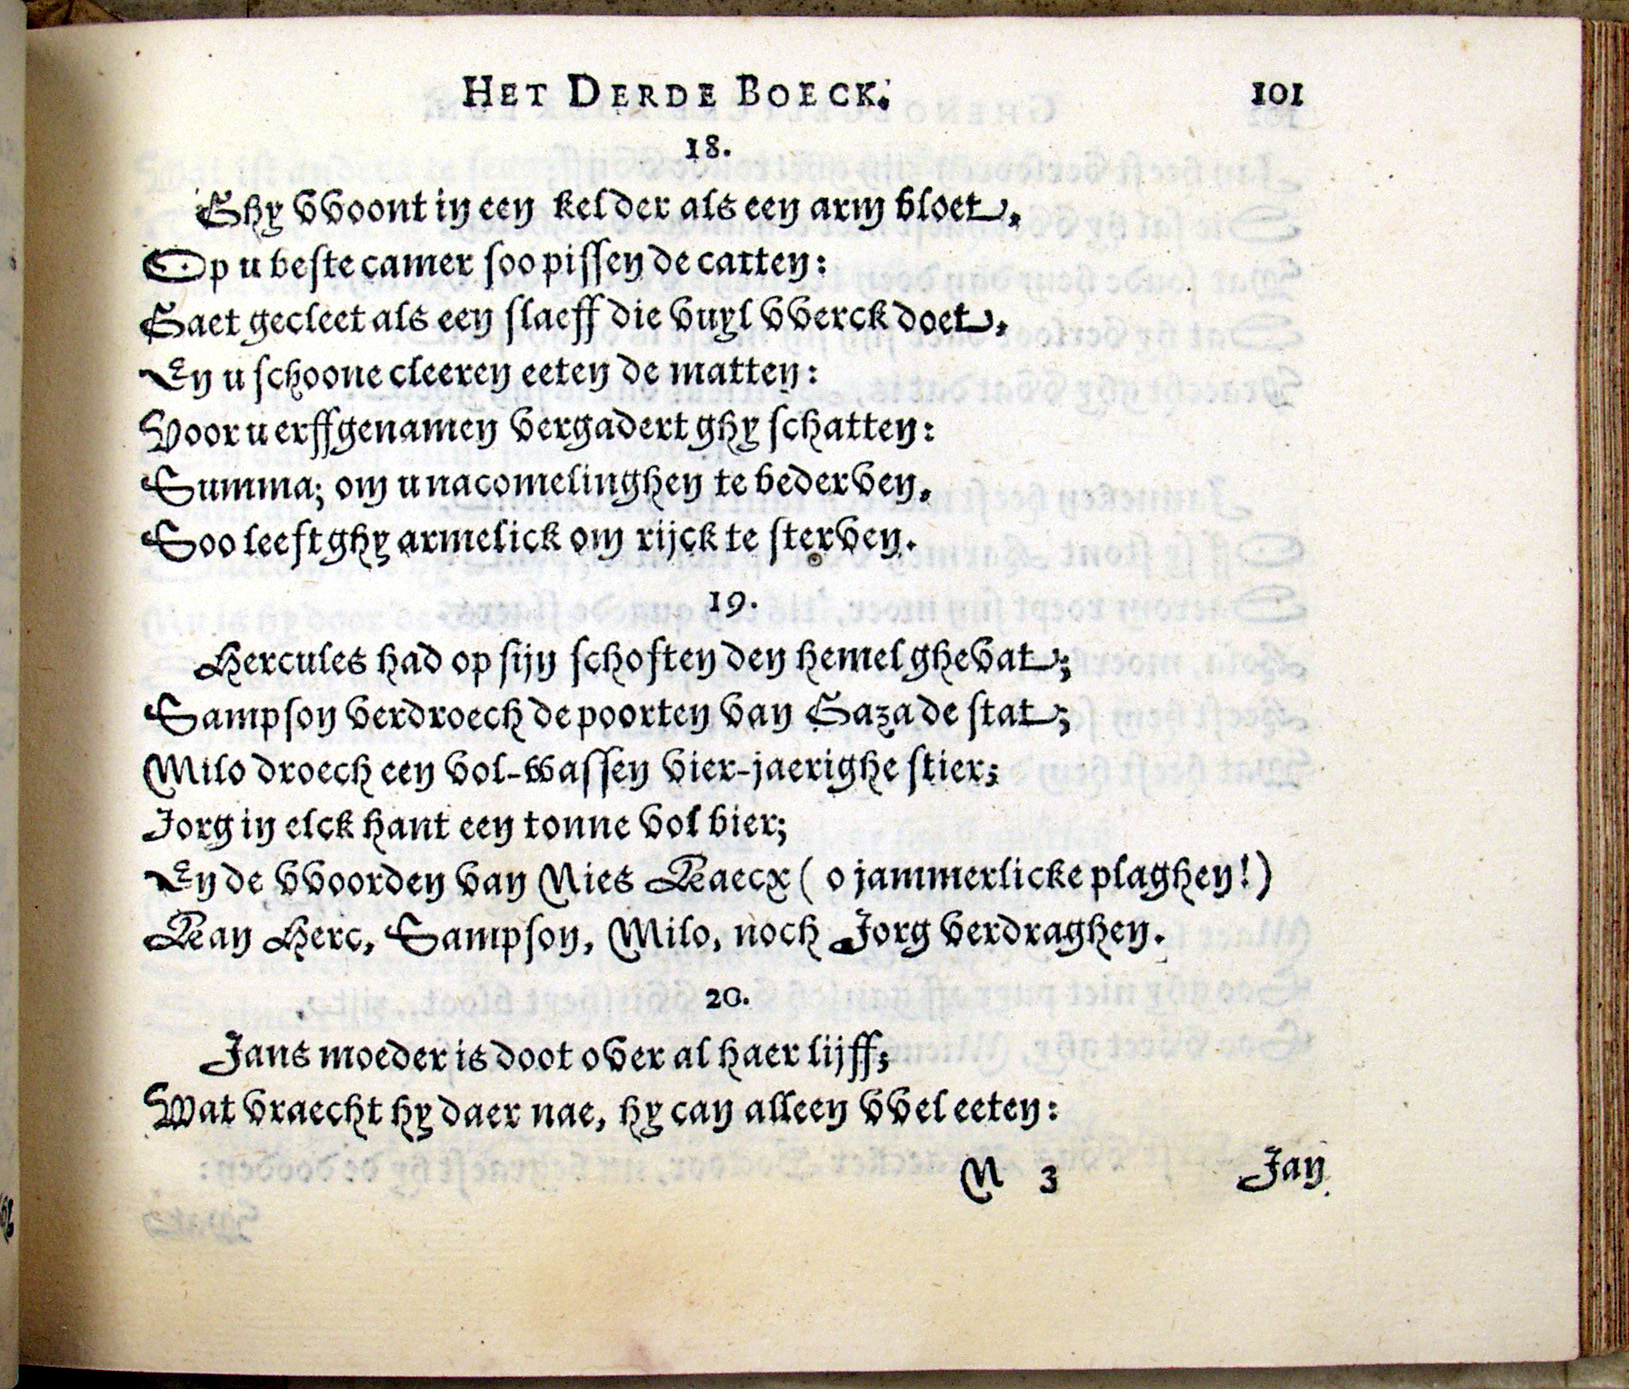 HET DERDE BOECK. 101
18.
Ghy vvoont in een kelder als een arm bloet,
Op u beste camer soo pissen de catten:
Gaet gecleet als een slaeff die vuyl vverck doet,
En u schoone cleeren eeten de matten:
Voor u erffgenamen vergadert ghy schatten:
Summa; om u nacomelinghen te bederven,
Soo leeft ghy armelick om rijck te sterven.
19.
Hercules had op sijn schoften den hemel ghevat;
Sampson verdroech de poorten van Gaza de stat;
Milo droech een vol-wassen vier-jaerighe stier;
Jorg in elck hant een tonne vol bier;
En de vvoorden van Nies Kaecx ( o jammerlicke plaghen!)
Kan Herc, Sampson, Milo, noch Jorg verdraghen.
20.
Jans moeder is doot over al haer lijff;
Wat vraecht hy daer nae, hy can alleen vvel eeten:
N 3 Jan